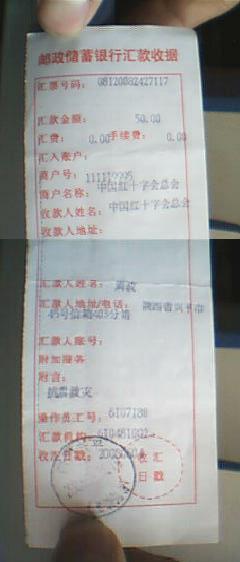 邮政储蓄银行汇款收据
汇票号码: 08120082427117
汇款金额: 50.00
汇费: 0.00 手续费: 0.00
汇入账户:
商户号: 111119995
商户名称: 中国红十字会总会
收款人姓名: 中国红十字会总会
收款人地址:
汇款人姓名:
汇款人地址/电话: 陕西省兴平市
45号信箱403分箱
汇款人账号:
附加服务
附言:
抗震救灾
操作员工号: 6107188
汇款机构:
收汇日戳:
收汇
日戳